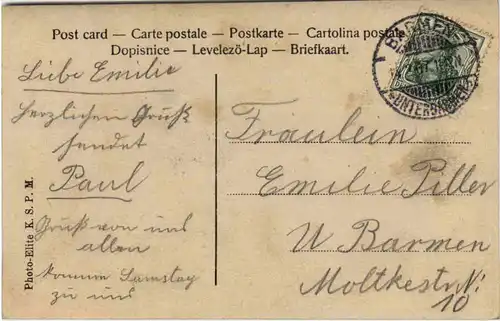 Post card — Carte postale — Postkarte — Cartolina postale
Dopisnice — Levelező-Lap — Briefkaart.
Liebe Emilie
Herzlichen Gruß
sendet
Paul
Gruß von uns
allen
komme Samstag
zu uns
Photo-Elite K. S. P. M.
Fräulein
Emilie Piller
U Barmen
Moltkestr. N:
10
BARMEN
UNTERBARMEN